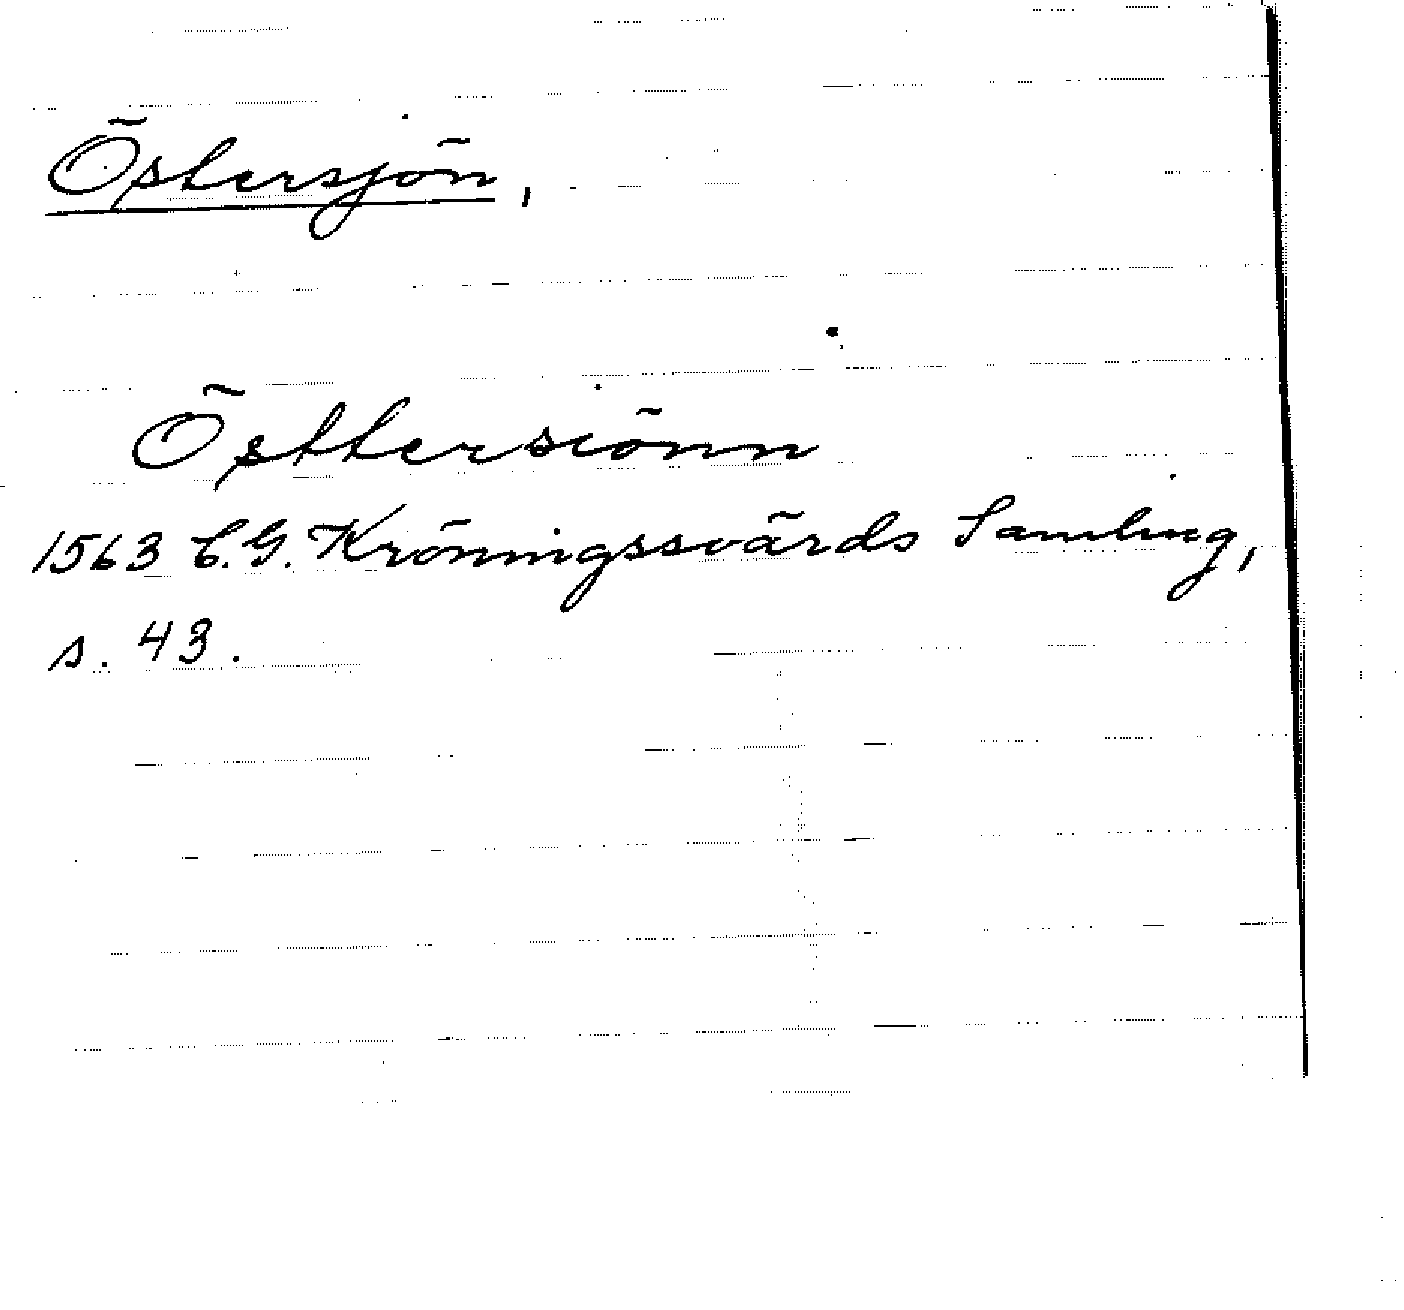 Östersjön,
Östtersiönn
1563 C.G. Kröningssvärds Samling,
s. 43.